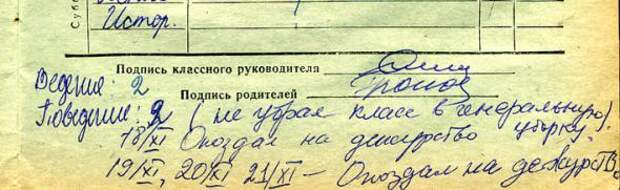 Суб
Истор.
Подпись классного руководителя
Ведение: 2
Подпись родителей
Поведение: 2 (не убрал класс в генеральную
уборку).
18/XI Опоздал на дежурство
19/XI, 20/XI 21/XI – Опоздал на дежурств